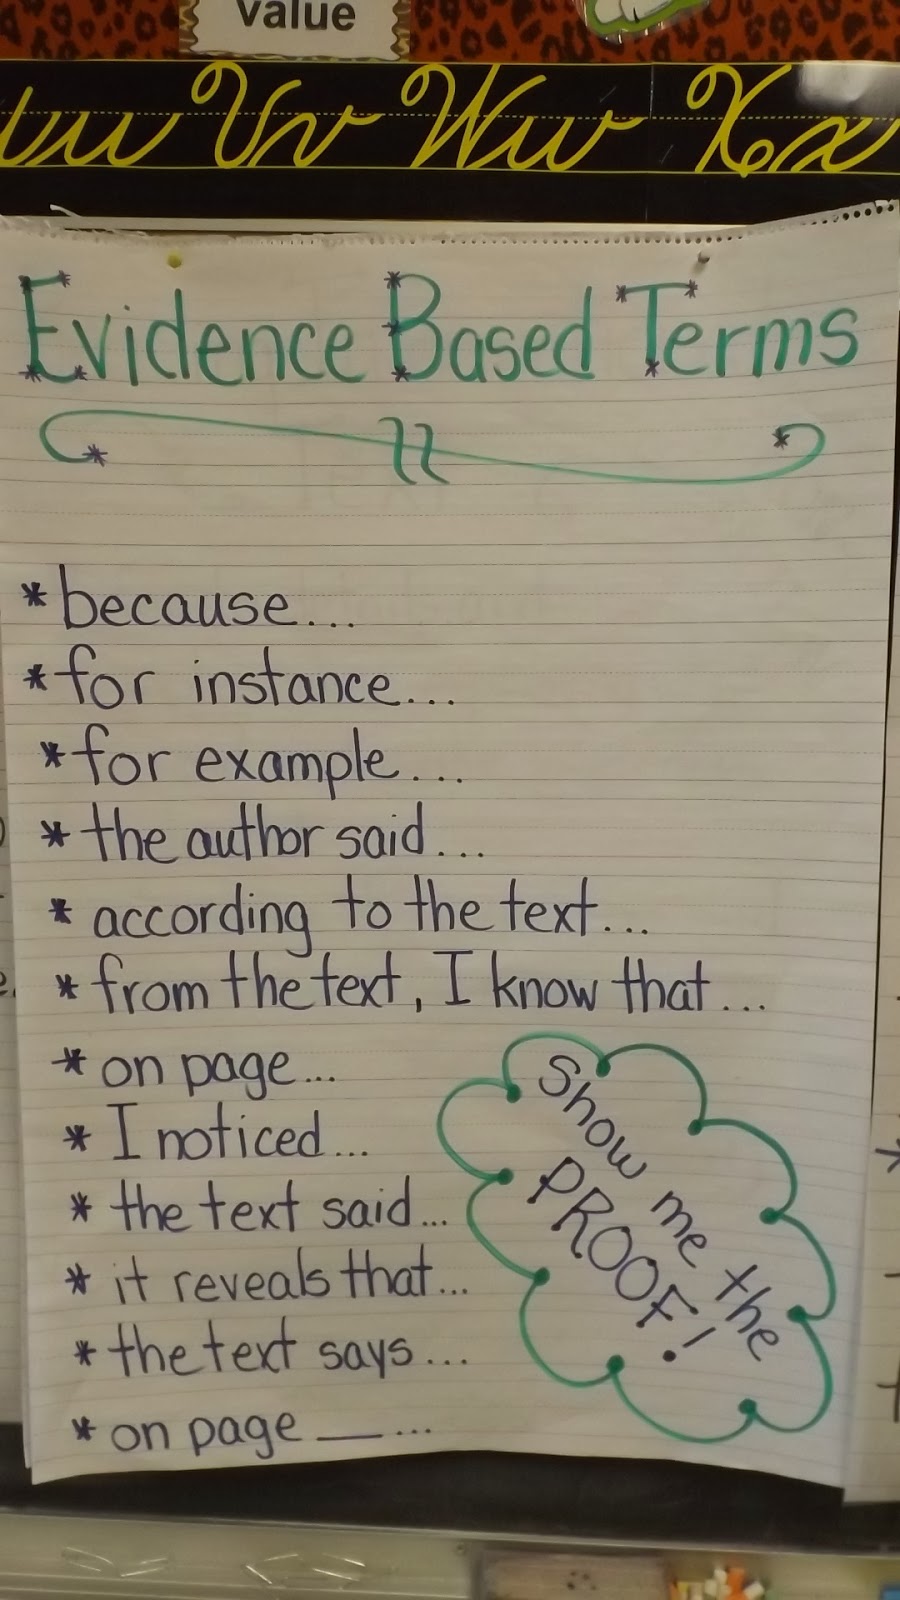 value
Vv Ww Xx
Evidence Based Terms
* because...
* for instance...
* for example...
* the author said...
* according to the text...
* from the text, I know that...
* on page...
* I noticed...
* the text said...
* it reveals that...
* the text says...
* on page ___...
Show me the
PROOF!